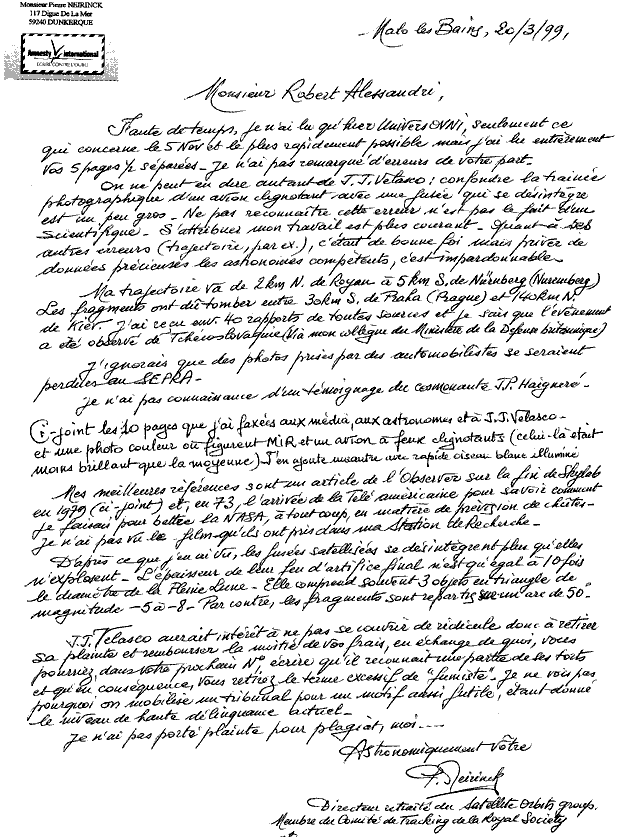 Monsieur Pierre NEIRINCK
117 Digue De La Mer
59240 DUNKERQUE
Amnesty International
Malo les Bains, 20/3/99,
Monsieur Robert Alessandri,
Faute de temps, je n'ai lu qu'hier Univers OVNI, seulement ce
qui concerne le 5 Nov et le plus rapidement possible mais j'ai lu entièrement
vos 5 pages 1/2 séparées. Je n'ai pas remarqué d'erreurs de votre part.
On ne peut en dire autant de J.J. Velasco : confondre la trainée
photographique d'un avion clignotant avec une fusée qui se désintègre
est un peu gros - Ne pas reconnaître cette erreur n'est pas le fait d'un
Scientifique - S'attribuer mon travail est plus courant - Quant à ses
autres erreurs (trajectoire, par ex.), c'était de bonne foi mais priver de
données précieuses les astronomes compétents, c'est impardonnable.
Ma trajectoire va de 2km N. de Royan à 5km S. de Nürnberg (Nuremberg)
Les fragments ont dû tomber entre 30km S. de Praha (Prague) et 140km N.
de Kiev. J'ai reçu env. 40 rapports de toutes sources et je sais que l'évènement
a été observé de Tchécoslovaquie (via mon collègue du Ministère de la Defense britannique)
J'ignorais que des photos prises par des automobilistes se seraient
perdues au SEPRA -
Je n'ai pas connaissance d'un témoignage du cosmonaute J.P. Haigneré -
Ci-joint les 10 pages que j'ai faxées aux média, aux astronomes et à J.J. Velasco -
et une photo couleur où figurent MIR et un avion à feux clignotants (celui-là était
moins brillant que la moyenne) J'en ajoute une autre avec rapide oiseau blanc illuminé
Mes meilleures références sont un article de l'Observer sur la fin de Skylab
en 1979 (ci-joint) et, en 73, l'arrivée de la Télé américaine pour savoir comment
je faisais pour battre la NASA, à tout coup, en matière de prévision de chûtes -
Je n'ai pas vu le film qu'ils ont pris dans ma Station de Recherche -
D'après ce que j'en ai vu, les fusées satellisées se désintègrent plus qu'elles
n'explosent - L'épaisseur de leur feu d'artifice final n'est qu'égal à 10 fois
le diamètre de la Pleine Lune - Elle comprend souvent 3 objets en triangle de
magnitude -5 à -8 - Par contre, les fragments sont repartis sur un arc de 50°
J.J. Velasco aurait intérêt à ne pas se couvrir de ridicule donc à retirer
sa plainte et rembourser la moitié de vos frais, en échange de quoi, vous
pourriez, dans votre prochain N°, écrire qu'il reconnait une partie de ses torts
et qu'en conséquence, vous retirez le terme excessif de "fumiste". Je ne vois pas
pourquoi on mobilise un tribunal pour un motif aussi futile, étant donné
le niveau de haute délinquance actuel -
Je n'ai pas porté plainte pour plagiat, moi ----
Astronomiquement Vôtre
P. Neirinck
Directeur retraité du Satellite Orbits group.
Membre du Comité de Tracking de la Royal Society